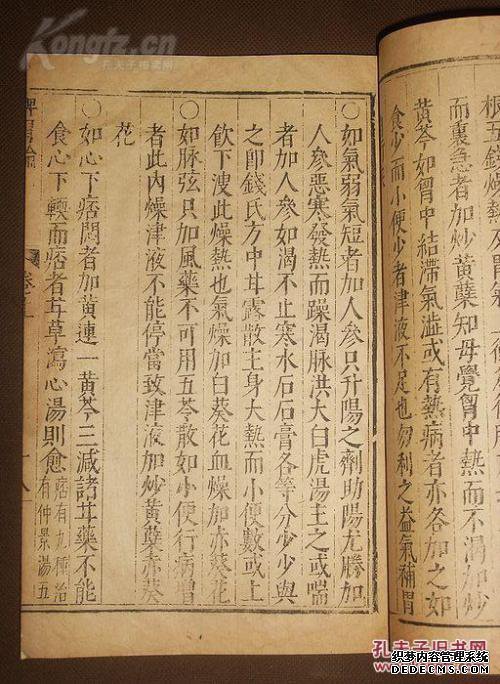 根五錢
而裏急者加炒黃蘗知母覺胷中熱而不加炒
黃芩如胷中結滯氣澁或有熱病者亦各加之如
食少而小便少者津液不足也勿利之益氣補胃
〇如氣弱氣短者加人參只升陽之劑助陽尤勝加
人參惡寒發熱而躁渴脉洪大白虎湯主之或喘
者加人參如渴不止寒水石石膏各等分少少與
之即錢氏方中甘露散主身大熱而小便數或上
飲下溲此燥熱也氣燥加白葵花血燥加赤葵花
〇如脉弦只加風藥不可用五苓散如小便行病增
者此內燥津液不能停當致津液加炒黃蘗赤葵
花
〇如心下痞悶者加黃連一黃芩三減諸甘藥不能
食心下輭而痞者甘草瀉心湯則愈痞有九種治
有仲景湯五
脾胃論
Kongfz.cn
孔夫子旧书网
织梦内容管理系统